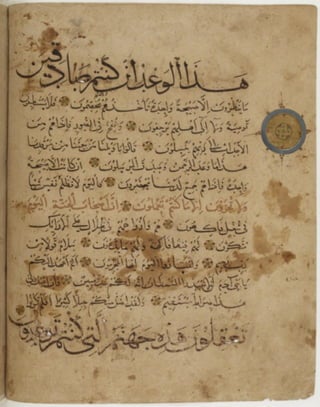 هذا الوعد ان كنتم صادقين
ما ينظرون الا صيحة واحدة تاخذهم وهم يخصمون فلا يستطيعون
توصية ولا الى اهلهم يرجعون ونفخ في الصور فاذا هم من
الاجداث الى ربهم ينسلون قالوا يا ويلنا من بعثنا من مرقدنا
هذا ما وعد الرحمن وصدق المرسلون ان كانت الا صيحة
واحدة فاذا هم جميع لدينا محضرون فاليوم لا تظلم نفس شيئا
ولا تجزون الا ما كنتم تعملون ان اصحاب الجنة اليوم
في شغل فاكهون هم وازواجهم في ظلال على الارائك
متكئون لهم فيها فاكهة ولهم ما يدعون سلام قولا من
رب رحيم وامتازوا اليوم ايها المجرمون الم اعهد اليكم
يا بني ادم ان لا تعبدوا الشيطان انه لكم عدو مبين وان اعبدوني
هذا صراط مستقيم ولقد اضل منكم جبلا كثيرا افلم تكونوا
تعقلون هذه جهنم التي كنتم توعدون